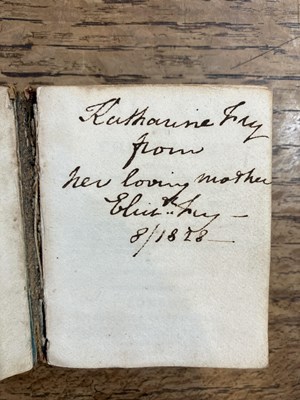 Katharine Fry
from
her loving mother
Elizth. Fry —
8/1828